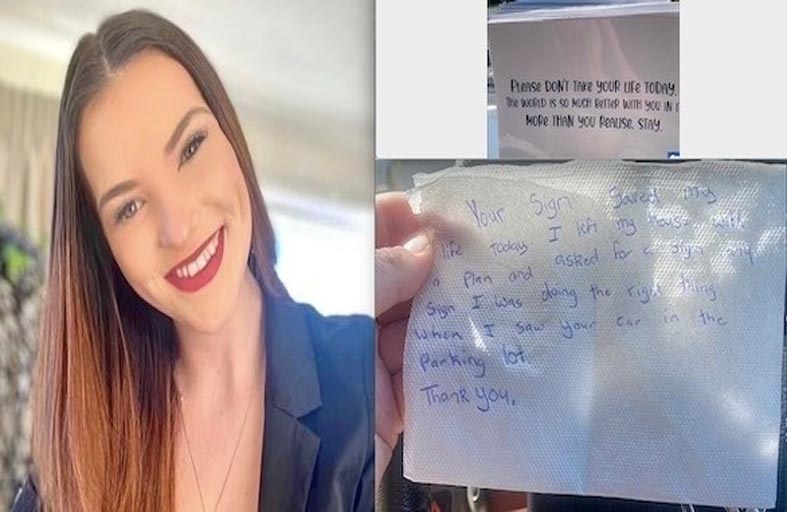 PLEASE DON'T TAKE YOUR LIFE TODAY.
THE WORLD IS SO MUCH BETTER WITH YOU IN
MORE THAN YOU REALISE. STAY.
Your Sign Saved my
life today I left my house with
a plan and asked for a sign any
Sign I was doing the right thing
when I saw your car in the
Parking lot
Thank you.